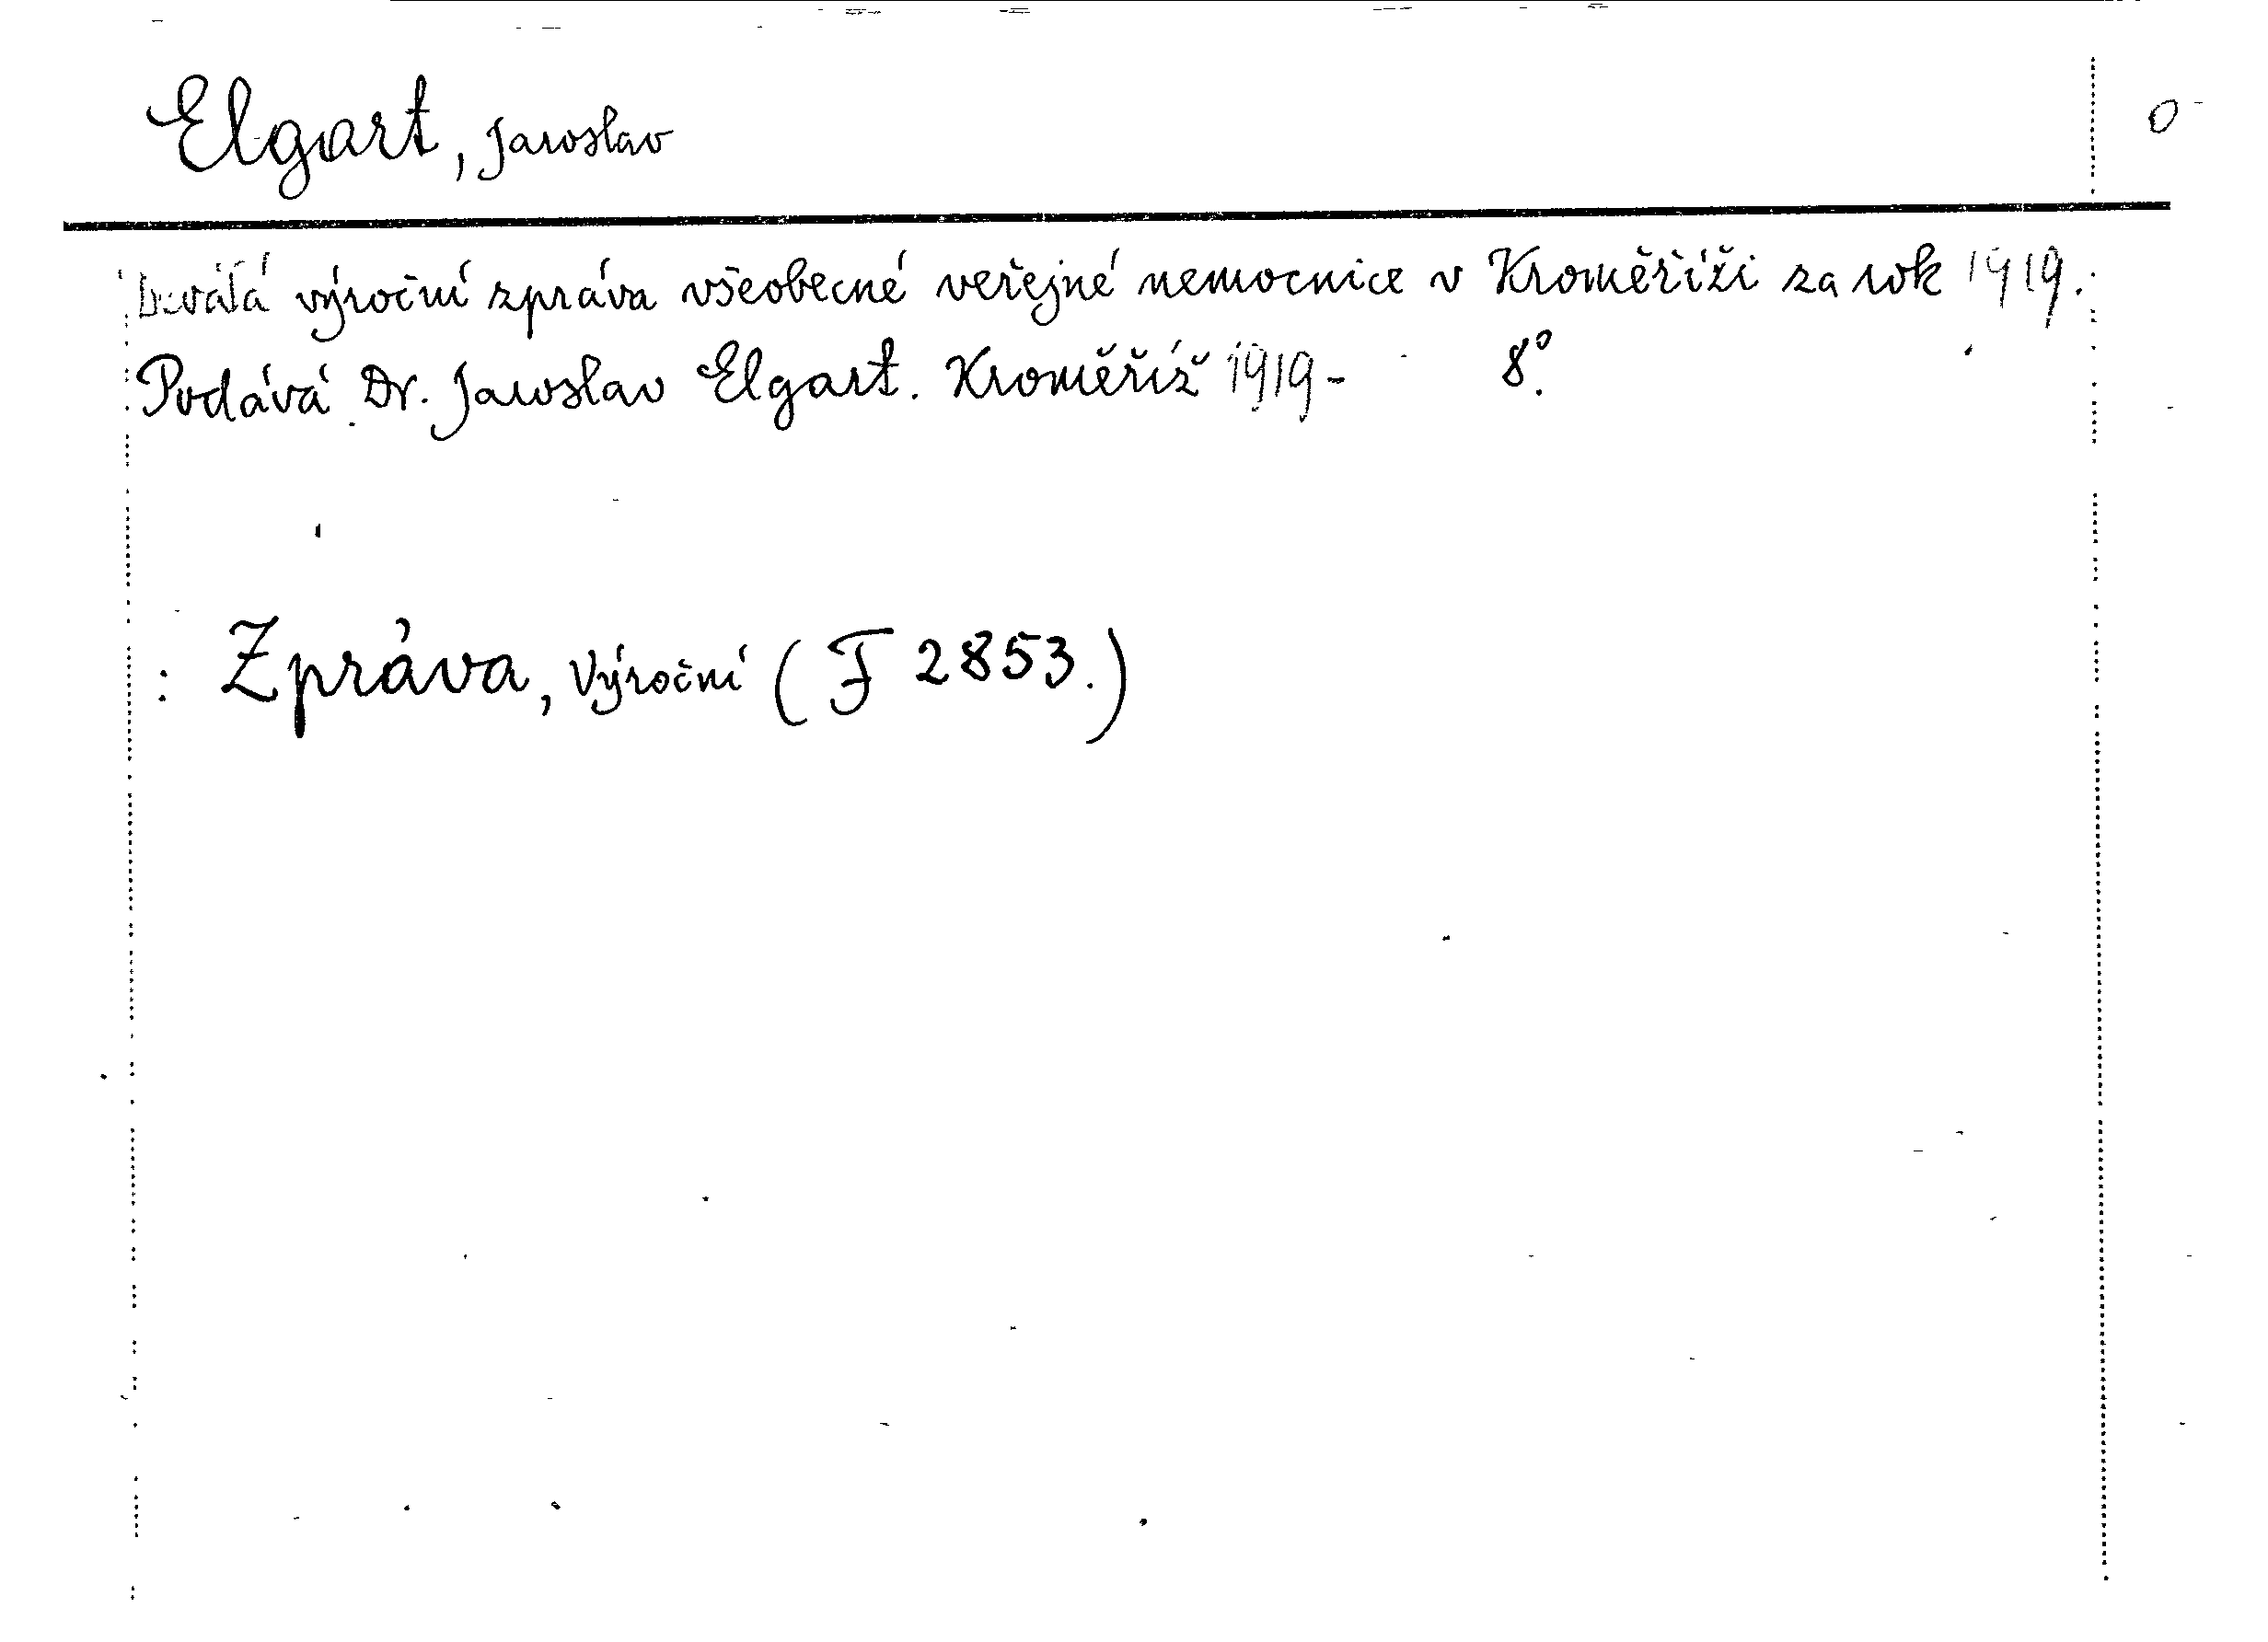 Elgart, Jaroslav
0
výroční zpráva všeobecné veřejné nemocnice v Kroměříži za rok 1919.
Podává Dr. Jaroslav Elgart. Kroměříž 1919- 8°.
: Zpráva, Výroční (F 2853.)